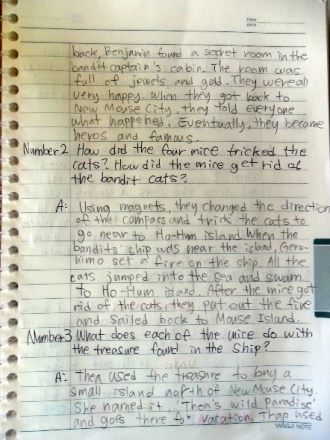 back, Benjamin found a secret room in the
bandit captain's cabin. The room was
full of jewels and gold. They were all
very happy. When they got back to
New Mouse City, they told everyone
what happened. Eventually, they become
heros and famous.
Number2 How did the four mice tricked the
cats? How did the mice get rid of
the bandit cats?
A: Using magnets, they changed the direction
of the compass and trick the cats to
go near to Ho-Hum island. When the
bandits ship was near the island, Gero-
nimo set a fire on the ship. All the
cats jumped into the sea and swam
to Ho-Hum island. After the mice got
rid of the cats, they put out the fire
and sailed back to Mouse Island.
Number3 What does each of the mice do with
the treasure found in the ship?
A: Thea used the treasure to buy a
small island north of New Mouse City.
She named it "Thea's Wild Paradise"
and goes there to vacation. Trap used